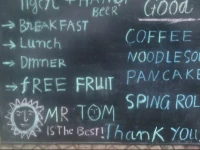 Tiger +
BEER
Good
→ BREAKFAST
→ Lunch
→ Dinner
→ fREE FRUIT
COFFEE
NOODLESO
PANCAKE
SPING ROL
MR TOM
IS The Best!
Thank You